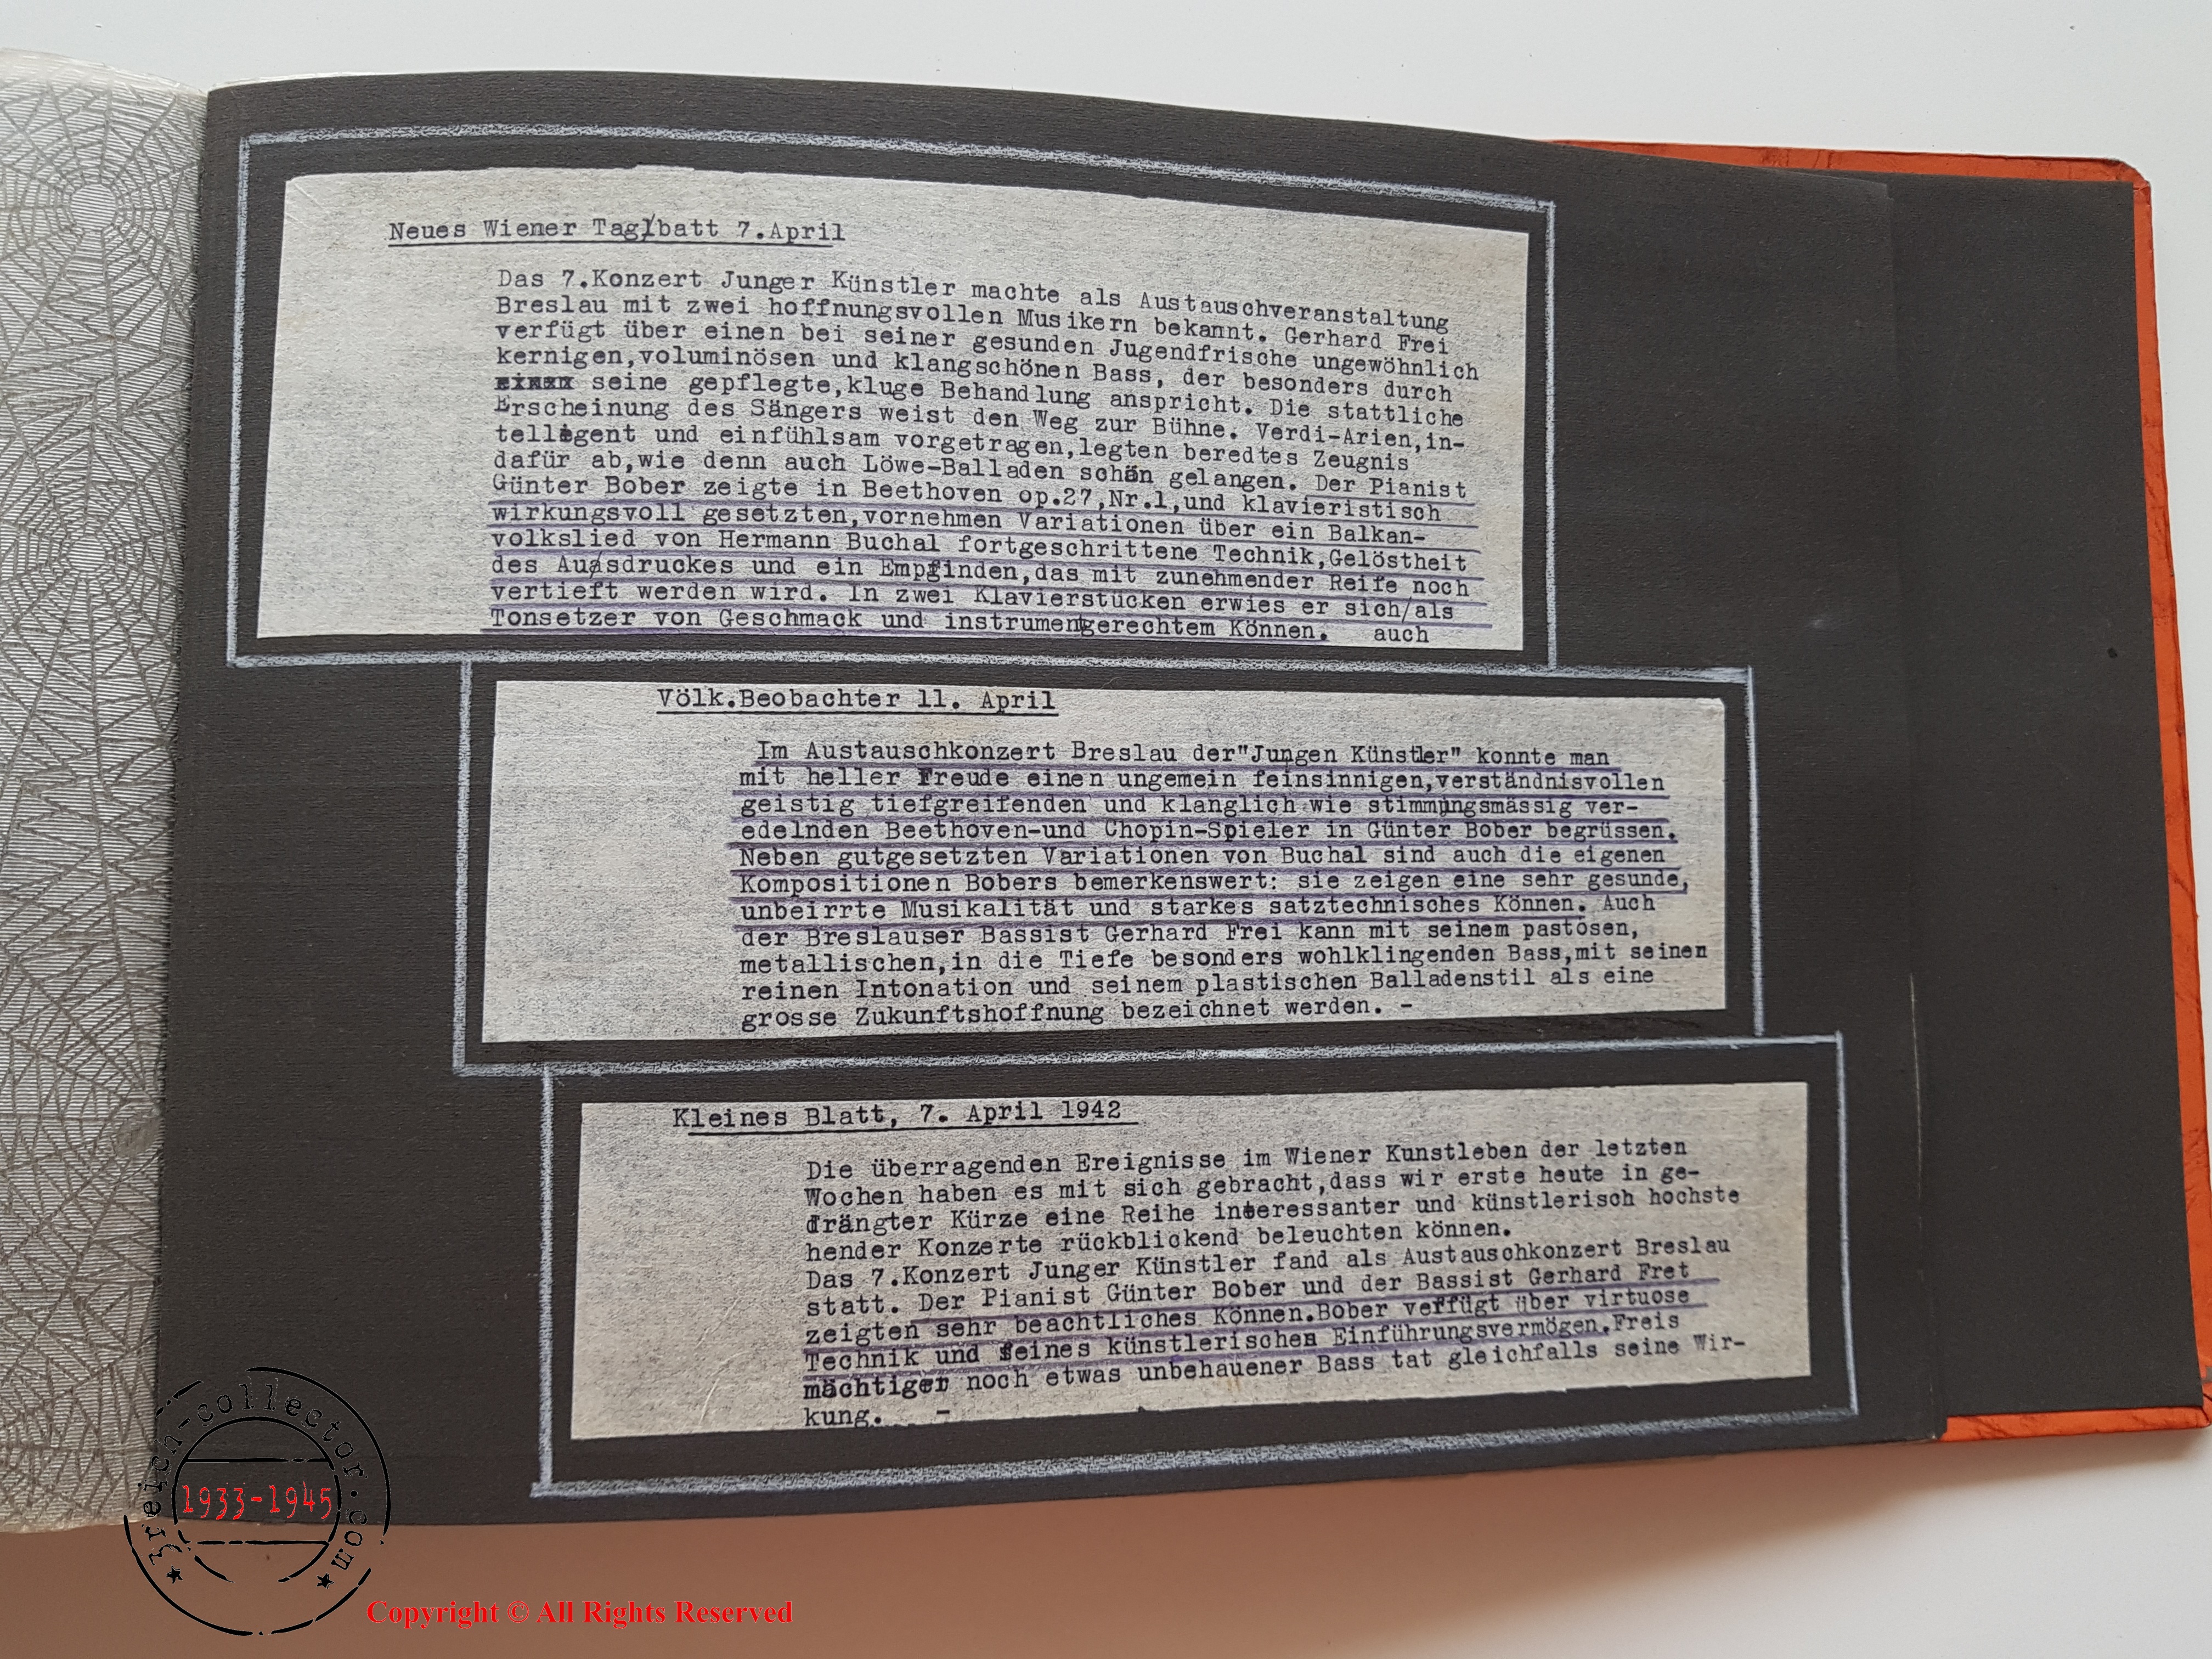 Neues Wiener Taglbatt 7.April
Das 7.Konzert Junger Künstler machte als Austauschveranstaltung
Breslau mit zwei hoffnungsvollen Musikern bekannt. Gerhard Frei
verfügt über einen bei seiner gesunden Jugendfrische ungewöhnlich
kernigen,voluminösen und klangschönen Bass, der besonders durch
seine gepflegte,kluge Behandlung anspricht. Die stattliche
Erscheinung des Sängers weist den Weg zur Bühne. Verdi-Arien,in-
telligent und einfühlsam vorgetragen,legten beredtes Zeugnis
dafür ab,wie denn auch Löwe-Balladen schön gelangen. Der Pianist
Günter Bober zeigte in Beethoven op.27,Nr.1,und klavieristisch
wirkungsvoll gesetzten,vornehmen Variationen über ein Balkan-
volkslied von Hermann Buchal fortgeschrittene Technik,Gelöstheit
des Ausdruckes und ein Empfinden,das mit zunehmender Reife noch
vertieft werden wird. In zwei Klavierstücken erwies er sich/als
Tonsetzer von Geschmack und instrumentgerechtem Können. auch
Völk.Beobachter 11. April
Im Austauschkonzert Breslau der"Jungen Künstler" konnte man
mit heller Freude einen ungemein feinsinnigen,verständnisvollen
geistig tiefgreifenden und klanglich wie stimmungsmässig ver-
edelnden Beethoven-und Chopin-Spieler in Günter Bober begrüssen.
Neben gutgesetzten Variationen von Buchal sind auch die eigenen
Kompositionen Bobers bemerkenswert: sie zeigen eine sehr gesunde,
unbeirrte Musikalität und starkes satztechnisches Können. Auch
der Breslauser Bassist Gerhard Frei kann mit seinem pastosen,
metallischen,in die Tiefe besonders wohlklingenden Bass,mit seinen
reinen Intonation und seinem plastischen Balladenstil als eine
grosse Zukunftshoffnung bezeichnet werden. -
Kleines Blatt, 7. April 1942
Die überragenden Ereignisse im Wiener Kunstleben der letzten
Wochen haben es mit sich gebracht,dass wir erste heute in ge-
drängter Kürze eine Reihe interessanter und künstlerisch hochste
hender Konzerte rückblickend beleuchten können.
Das 7.Konzert Junger Künstler fand als Austauschkonzert Breslau
statt. Der Pianist Günter Bober und der Bassist Gerhard Fret
zeigten sehr beachtliches Können.Bober verfügt über virtuose
Technik und feines künstlerisches Einführungsvermögen.Freis
mächtiger noch etwas unbehauener Bass tat gleichfalls seine Wir-
kung. -
3reich-collector.com
1933-1945
Copyright © All Rights Reserved